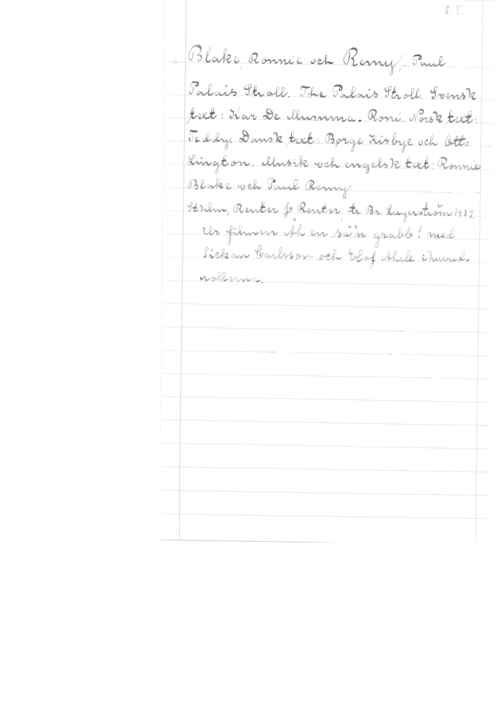 Blake, Ronnie och Remy, Paul
Palais Stroll. The Palais Stroll. Svensk
text: Kar De Mumma. Roni. Norsk text:
Teddy. Dansk text: Børge Kisbye och Otto
Lington. Musik och engelsk text: Ronnie
Blake och Paul Remy
Sthlm, Reuter & Reuter, tr Br. Lagerström 1932
Ur filmen Ah en så'n grabb! med
Sickan Carlsson och Elof Ahrle i huvud
rollerna.